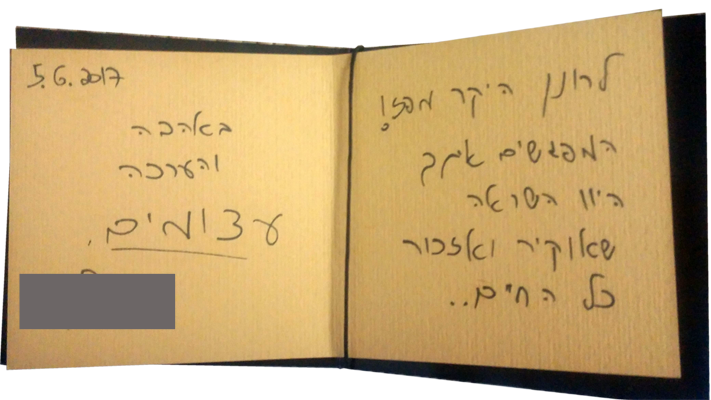 לרונן היקר מפז!
המפגשים איתך
היוו השראה
שאוקיר ואזכור
כל החיים..
5.6.2017
באהבה
והערכה
עצומים.